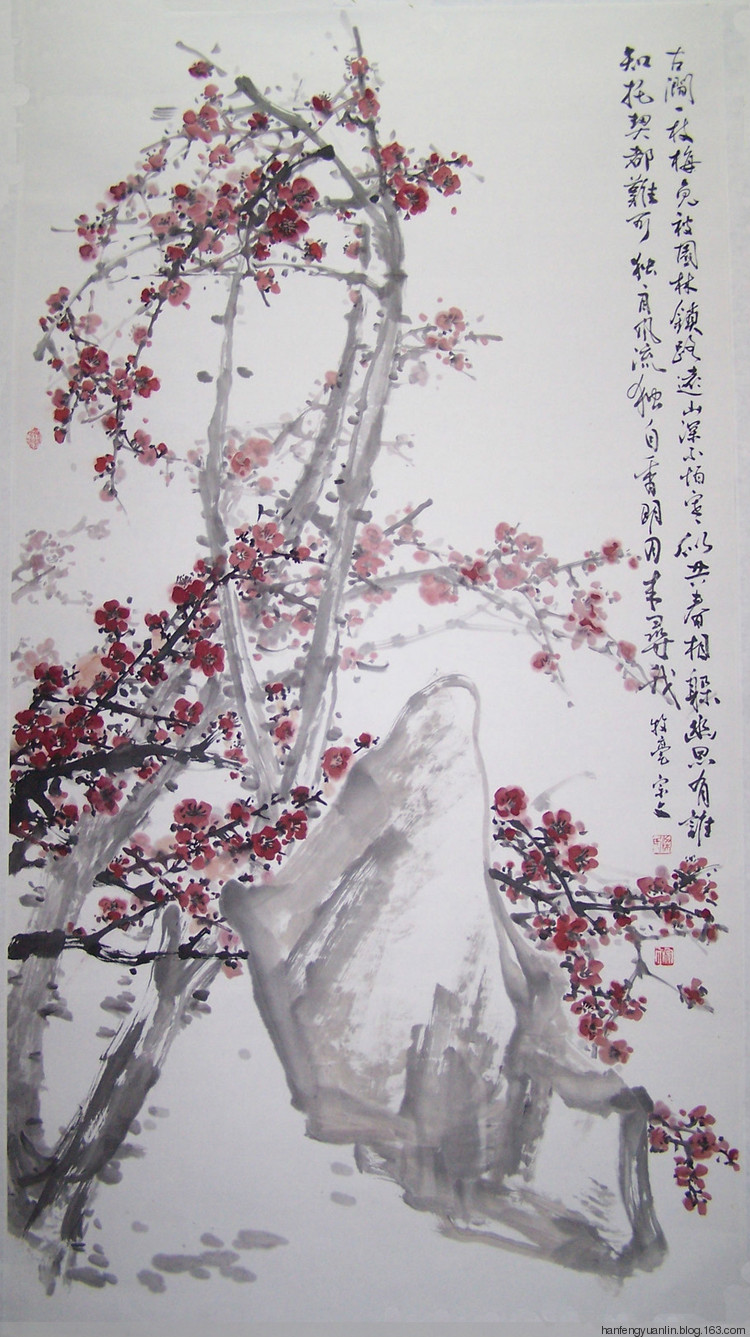 古澗一枝梅免被園林鎖路遠山深不怕寒似共春相躲幽思有誰
知托契都難可独自风流独自香明月来尋我
hanfengyuanlin.blog.163.com